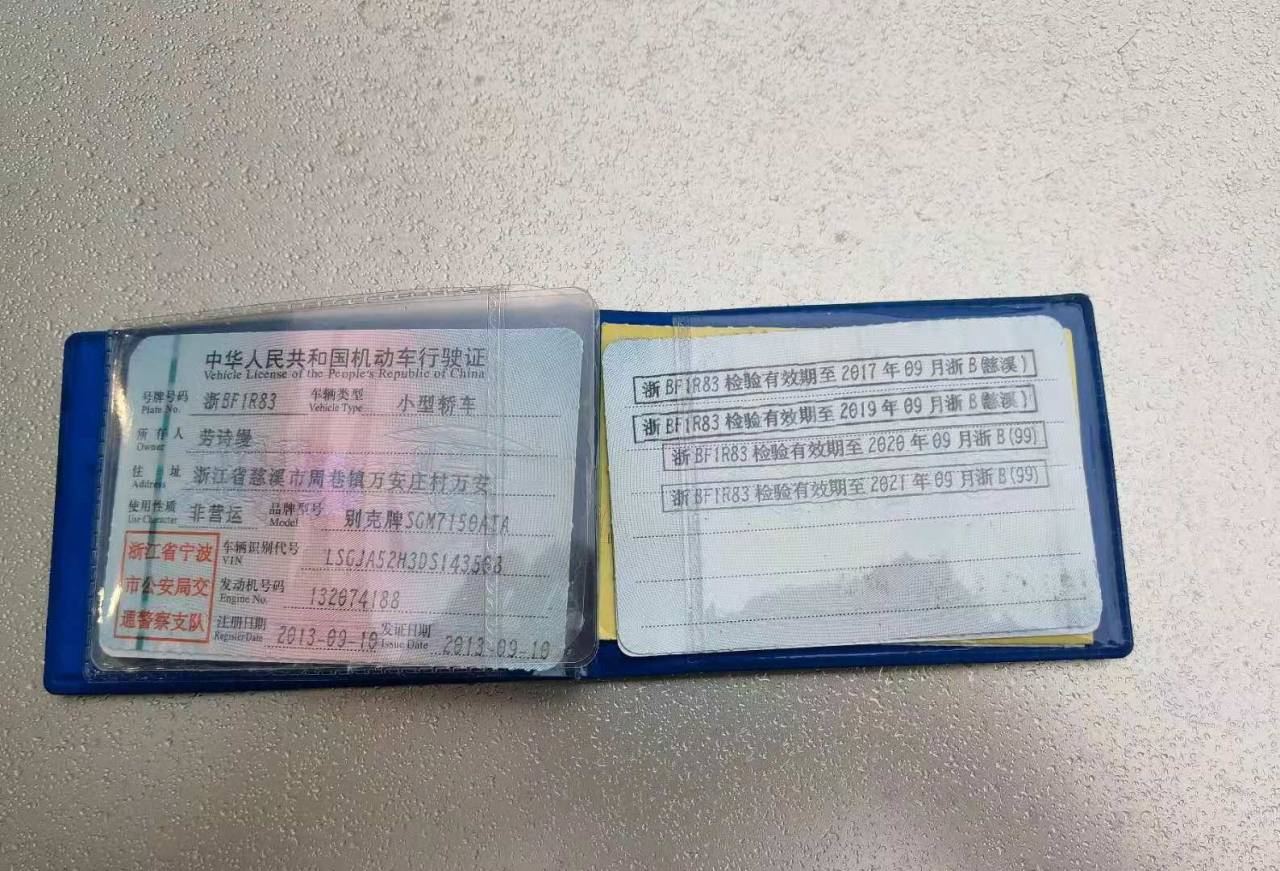 中华人民共和国机动车行驶证
Vehicle License of the People's Republic of China
号牌号码 Plate No. 浙BF1R83 车辆类型 Vehicle Type 小型轿车
所有人 Owner 劳诗嫚
住址 Address 浙江省慈溪市周巷镇万安庄村万安
使用性质 Use Character 非营运 品牌型号 Model 别克牌SGM7150ATA
浙江省宁波
市公安局交
通警察支队
车辆识别代号 VIN LSGJA52H3DS143568
发动机号码 Engine No. 132074188
注册日期 Register Date 2013-09-10 发证日期 Issue Date 2013-09-10
浙BF1R83检验有效期至2017年09月浙B(慈溪)
浙BF1R83检验有效期至2019年09月浙B(慈溪)
浙BF1R83检验有效期至2020年09月浙B(99)
浙BF1R83检验有效期至2021年09月浙B(99)